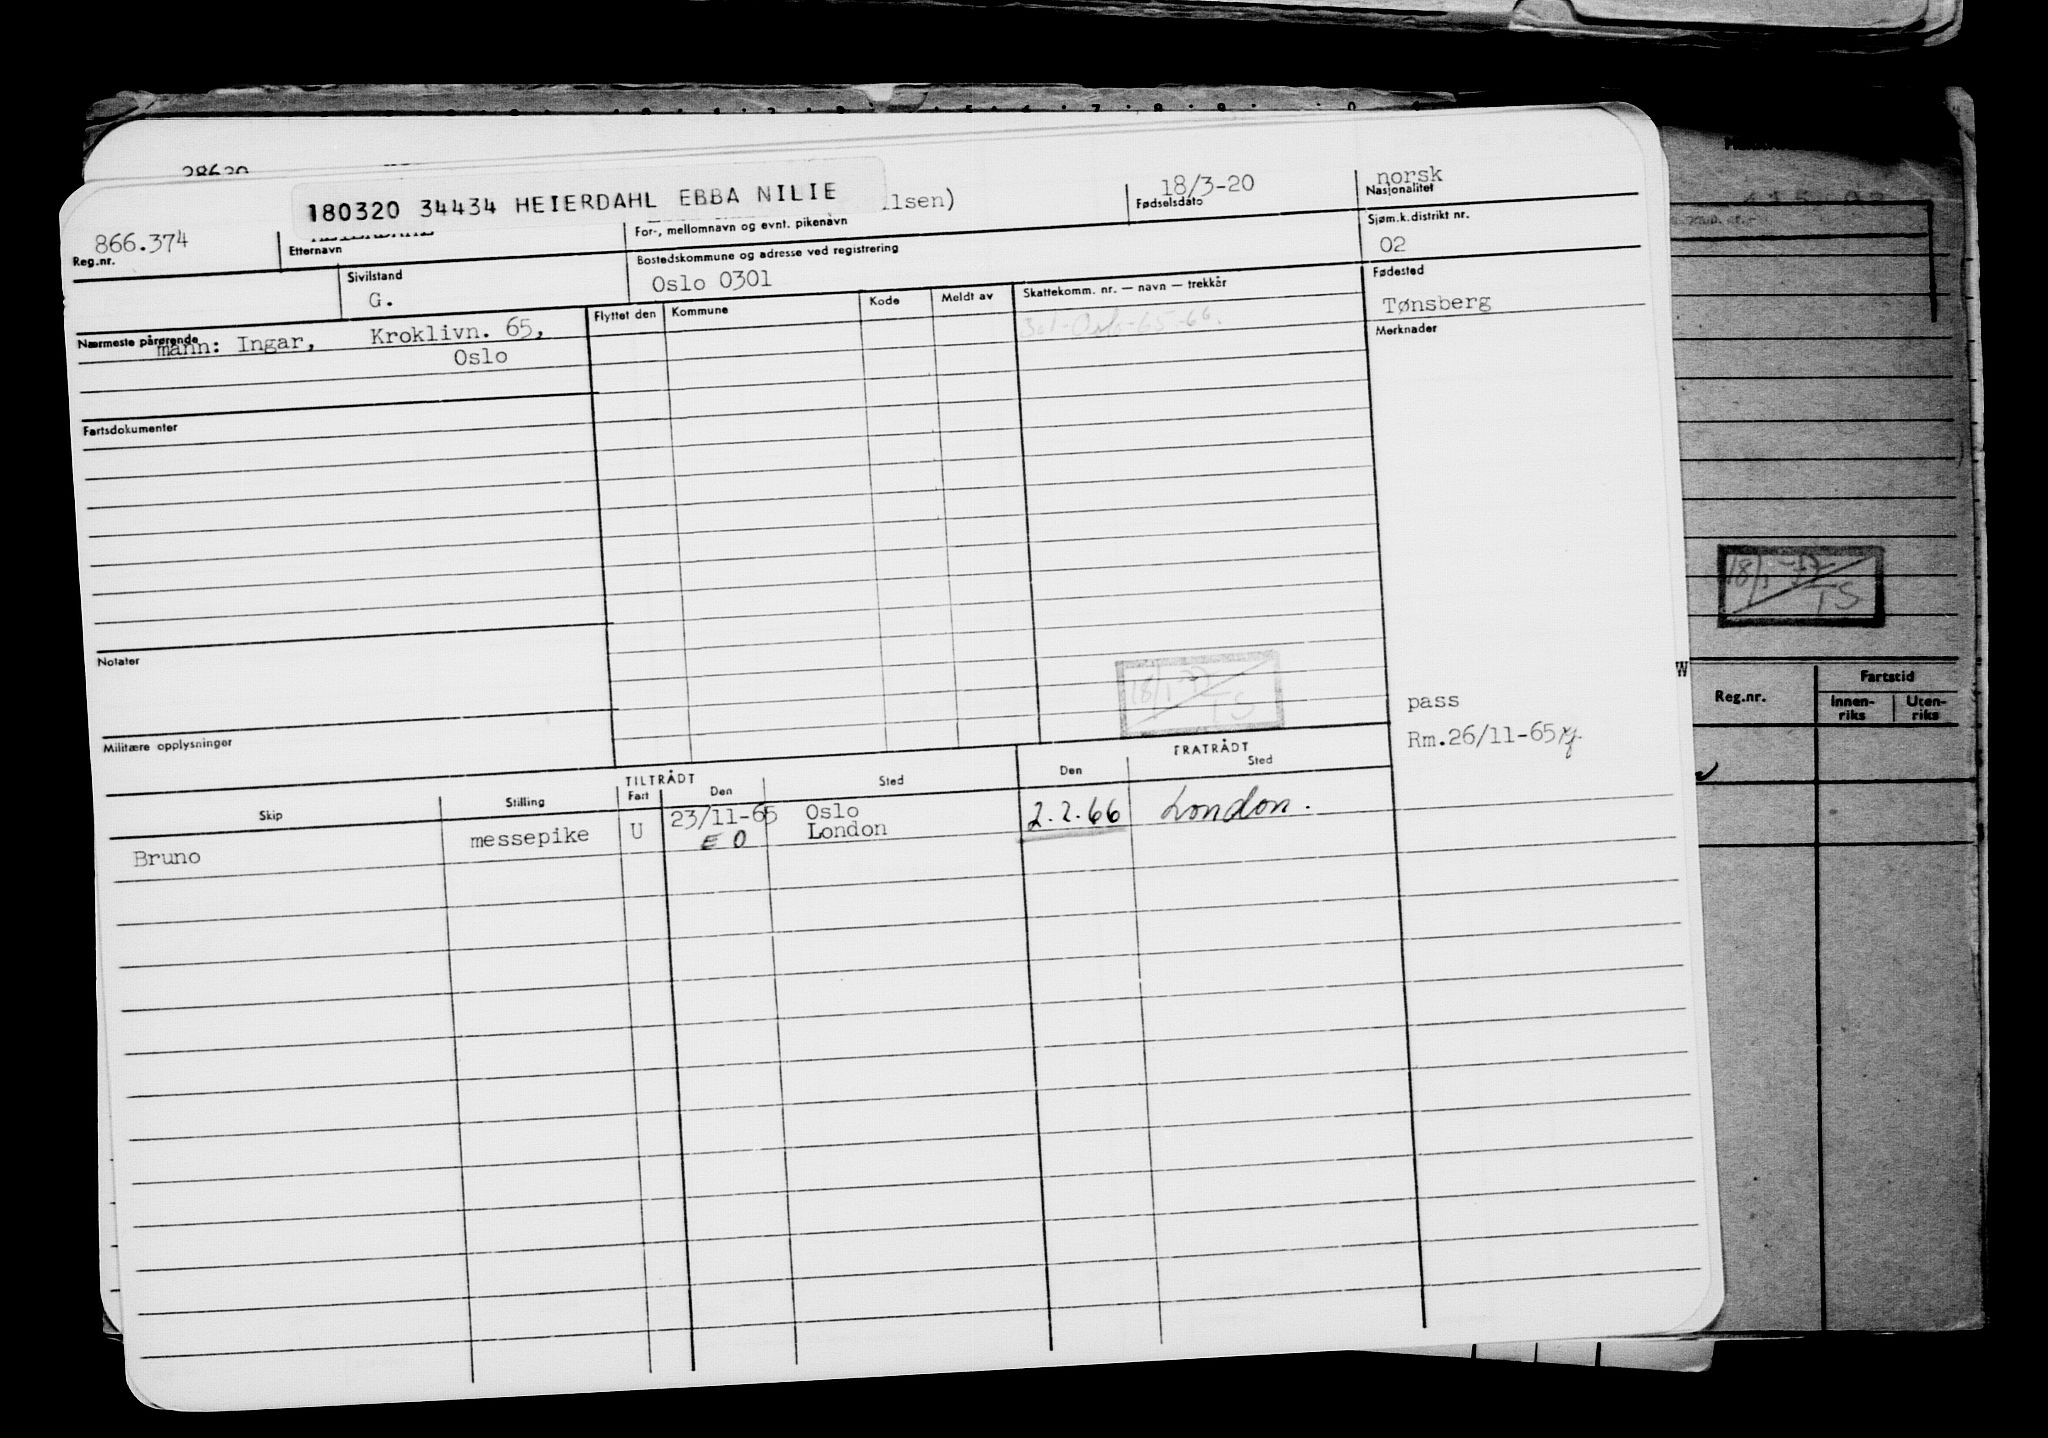 180320 34434 HEIERDAHL EBBA NILIE
lsen)
18/3-20
norsk
866.374
Reg.nr.
Etternavn
For-, mellomnavn og evnt. pikenavn
Fødselsdato
Nasjonalitet
Sivilstand
G.
Bostedskommune og adresse ved registrering
Oslo 0301
Sjøm.k.distrikt nr.
02
Nærmeste pårørende
mann: Ingar, Kroklivn. 65,
Oslo
Flyttet den
Kommune
Kode
Meldt av
Skattekomm. nr. — navn — trekkår
301-Oslo-65-66.
Fødested
Tønsberg
Merknader
Fartsdokumenter
Notater
Militære opplysninger
18/1-77
TS
pass
Rm.26/11-65
TILTRÅDT
FRATRÅDT
Skip
Stilling
Fart
Den
Sted
Den
Sted
Bruno
messepike
U
23/11-65
E O
Oslo
London
2.2.66
London.
18/1-77
TS
W
Reg.nr.
Fartstid
Innen-
riks
Uten-
riks